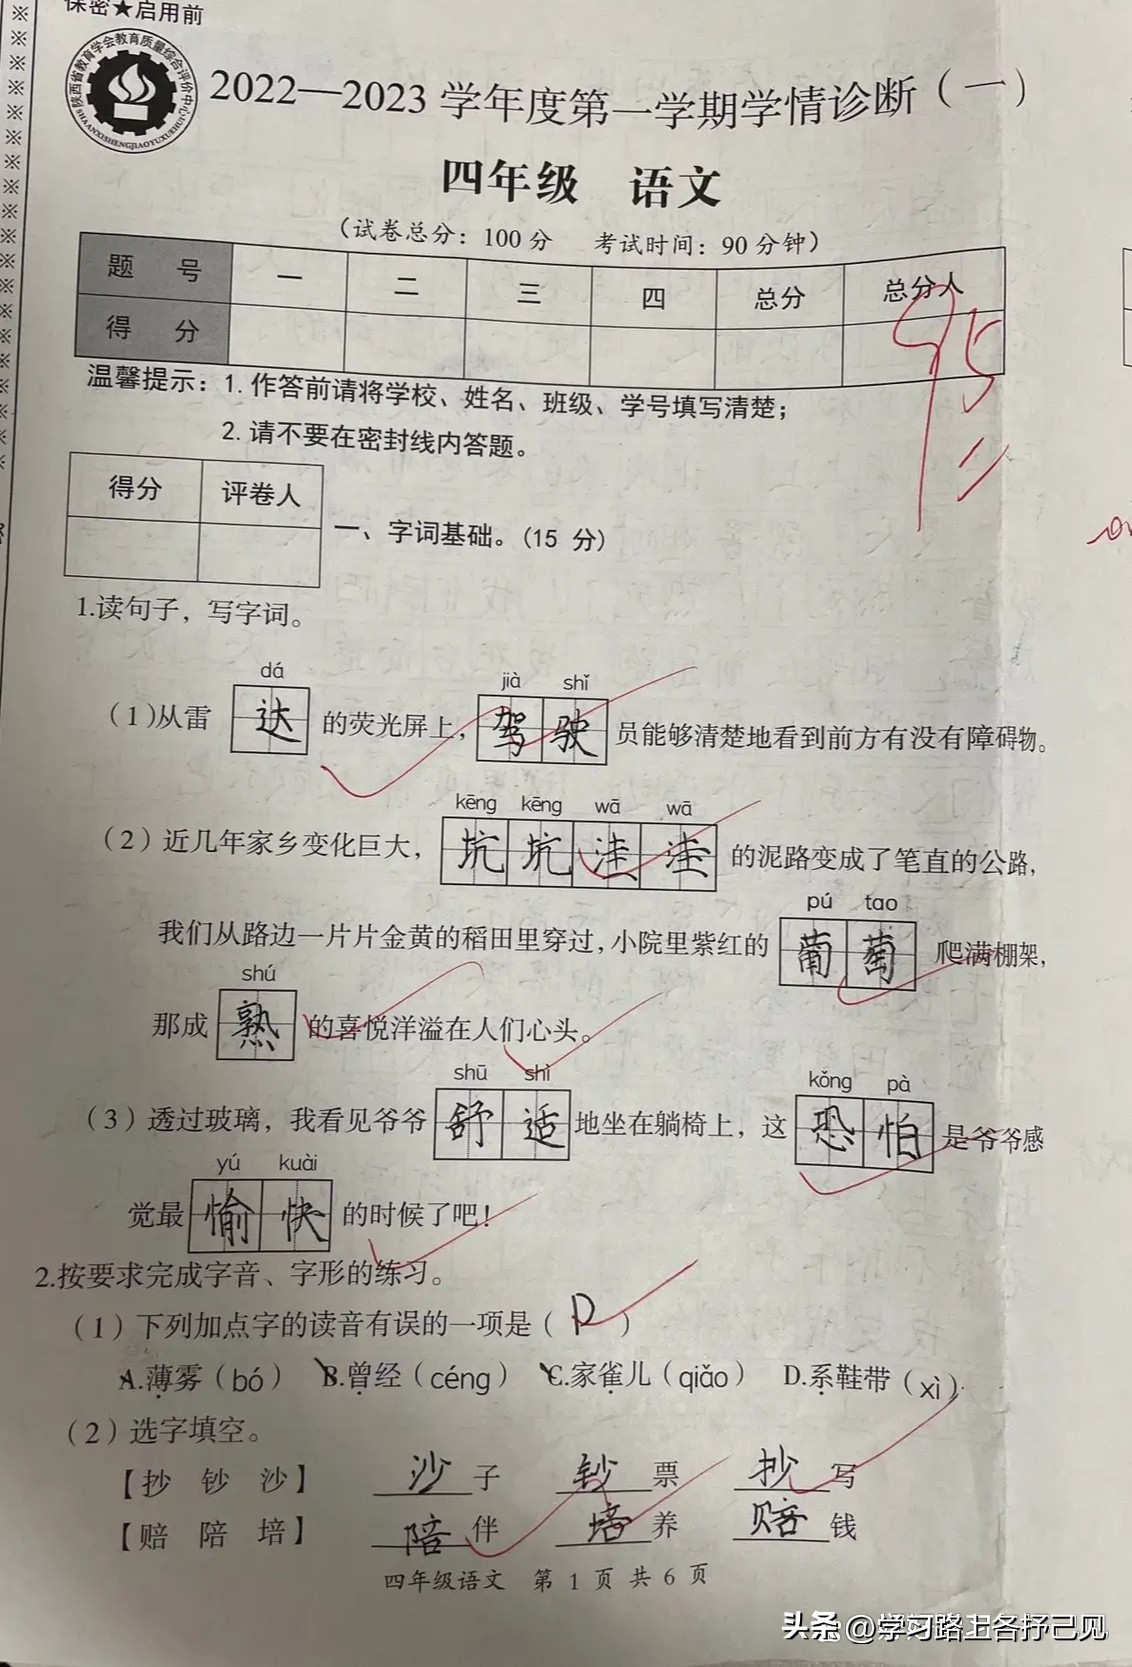 保密★启用前
陕西省教育学会教育质量综合评价中心
SHAANXISHENGJIAOYUXUEHUI
2022—2023 学年度第一学期学情诊断（一）
四年级 语文
（试卷总分：100 分 考试时间：90 分钟）
题 号 一 二 三 四 总分 总分人
得 分
95
温馨提示：1. 作答前请将学校、姓名、班级、学号填写清楚；
2. 请不要在密封线内答题。
得分 评卷人
一、字词基础。(15 分)
1.读句子，写字词。
dá jià shǐ
（1）从雷 达 的荧光屏上，驾驶 员能够清楚地看到前方有没有障碍物。
kēng kēng wā wā
（2）近几年家乡变化巨大，坑坑洼洼 的泥路变成了笔直的公路，
pú tao
我们从路边一片片金黄的稻田里穿过，小院里紫红的 葡萄 爬满棚架，
shú
那成 熟 的喜悦洋溢在人们心头。
shū shì kǒng pà
（3）透过玻璃，我看见爷爷 舒适 地坐在躺椅上，这 恐怕 是爷爷感
yú kuài
觉最 愉快 的时候了吧！
2.按要求完成字音、字形的练习。
（1）下列加点字的读音有误的一项是（ D ）
A.薄雾（bó） B.曾经（céng） C.家雀儿（qiǎo） D.系鞋带（xì）
（2）选字填空。
【抄 钞 沙】 沙 子 钞 票 抄 写
【赔 陪 培】 陪 伴 培 养 赔 钱
四年级语文 第 1 页 共 6 页
头条 @学习路上各抒己见